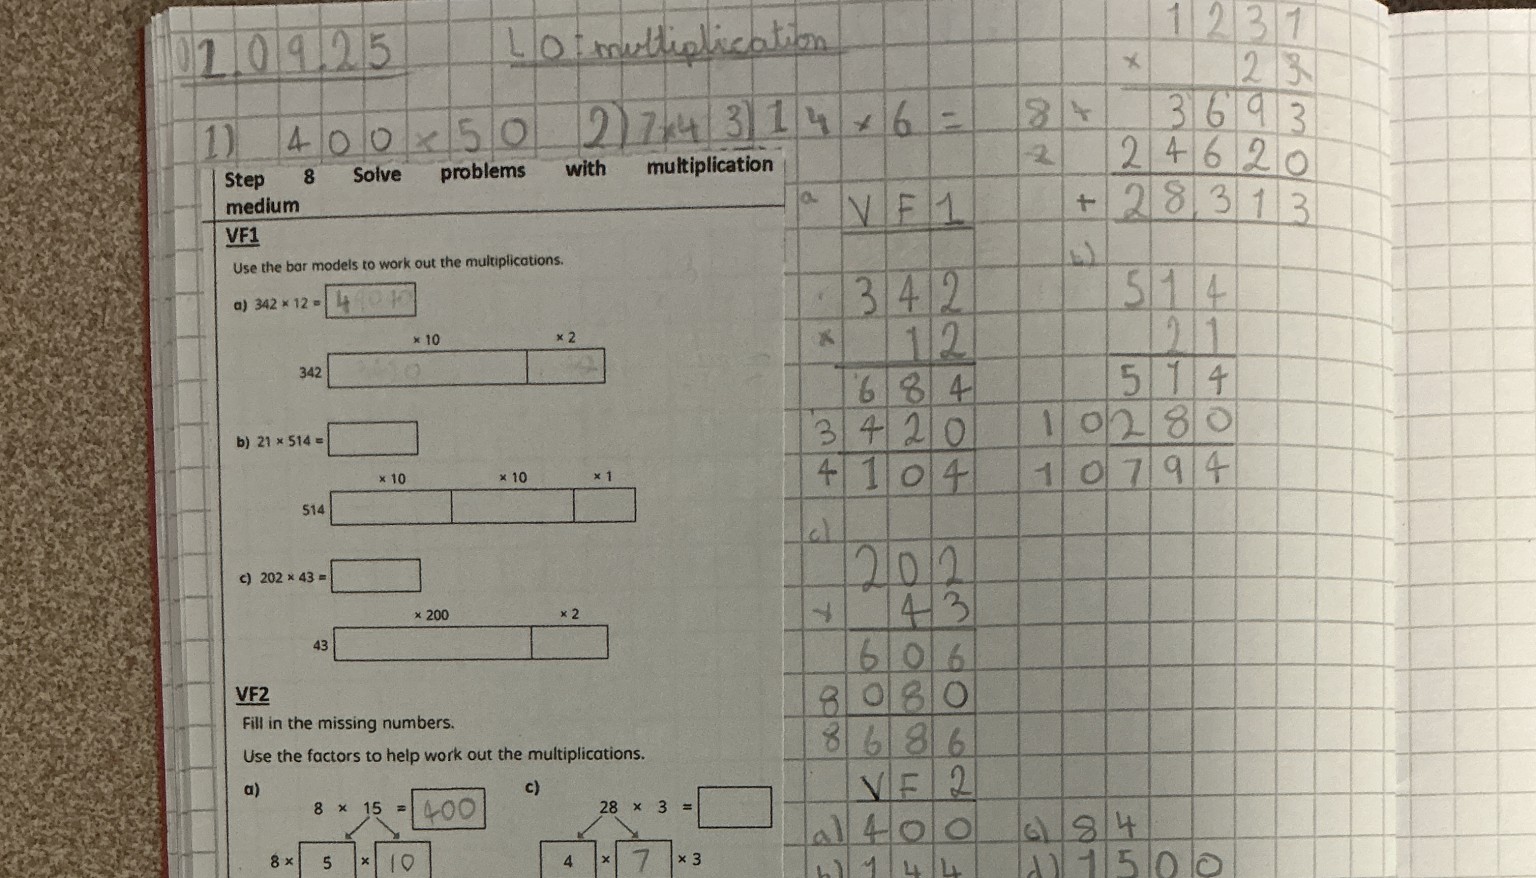 01.09.25
LO: multiplication
1) 400 × 50 2) 7×4 3) 14 × 6 =
Step 8 Solve problems with multiplication
medium
VF1
Use the bar models to work out the multiplications.
a) 342 × 12 = 4
× 10 × 2
342
b) 21 × 514 =
× 10 × 10 × 1
514
c) 202 × 43 =
× 200 × 2
43
VF2
Fill in the missing numbers.
Use the factors to help work out the multiplications.
a)
8 × 15 = 400
8 × 5 × 10
c)
28 × 3 =
4 × 7 × 3
a VF1
342
× 12
684
3420
4104
c)
202
× 43
606
8080
8686
VF2
a) 400 c) 84
b) 144 d) 1500
1231
× 23
8 + 3693
2 24620
+ 28,313
b)
514
21
514
10280
10794